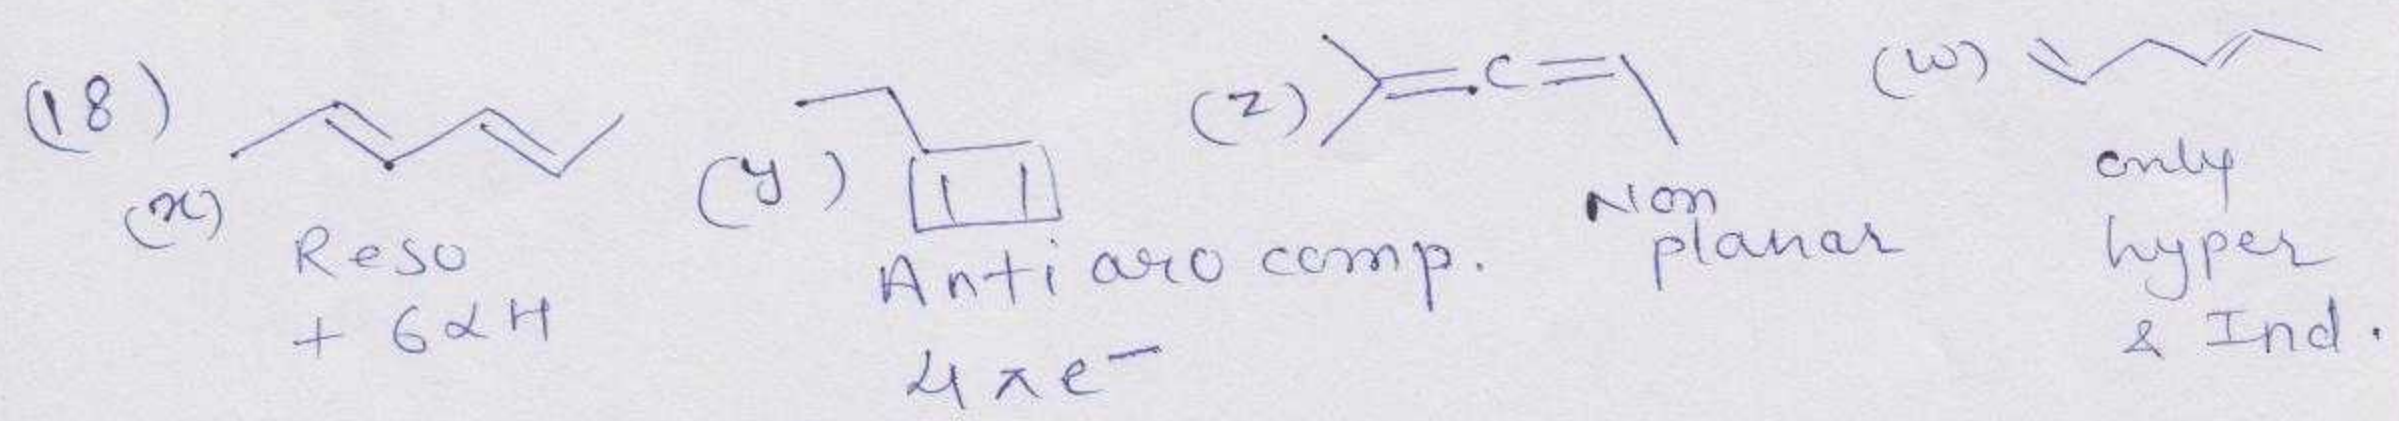 (18)
(x)
Reso
+ 6αH
(y)
Anti aro comp.
4πe⁻
(z)
C
Non
planar
(w)
only
hyper
& Ind.